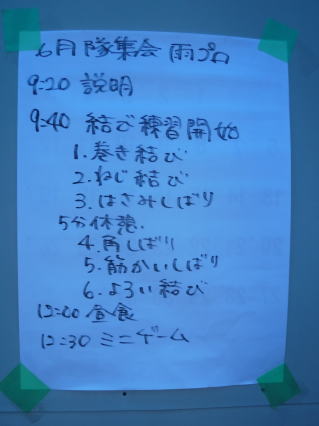 6月 隊集会 雨プロ
9:20 説明
9:40 結び練習開始
1.巻き結び
2.ねじ結び
3.はさみしばり
5分休憩.
4.角しばり
5.筋かいしばり
6.よろい結び
12:00 昼食
12:30 ミニゲーム